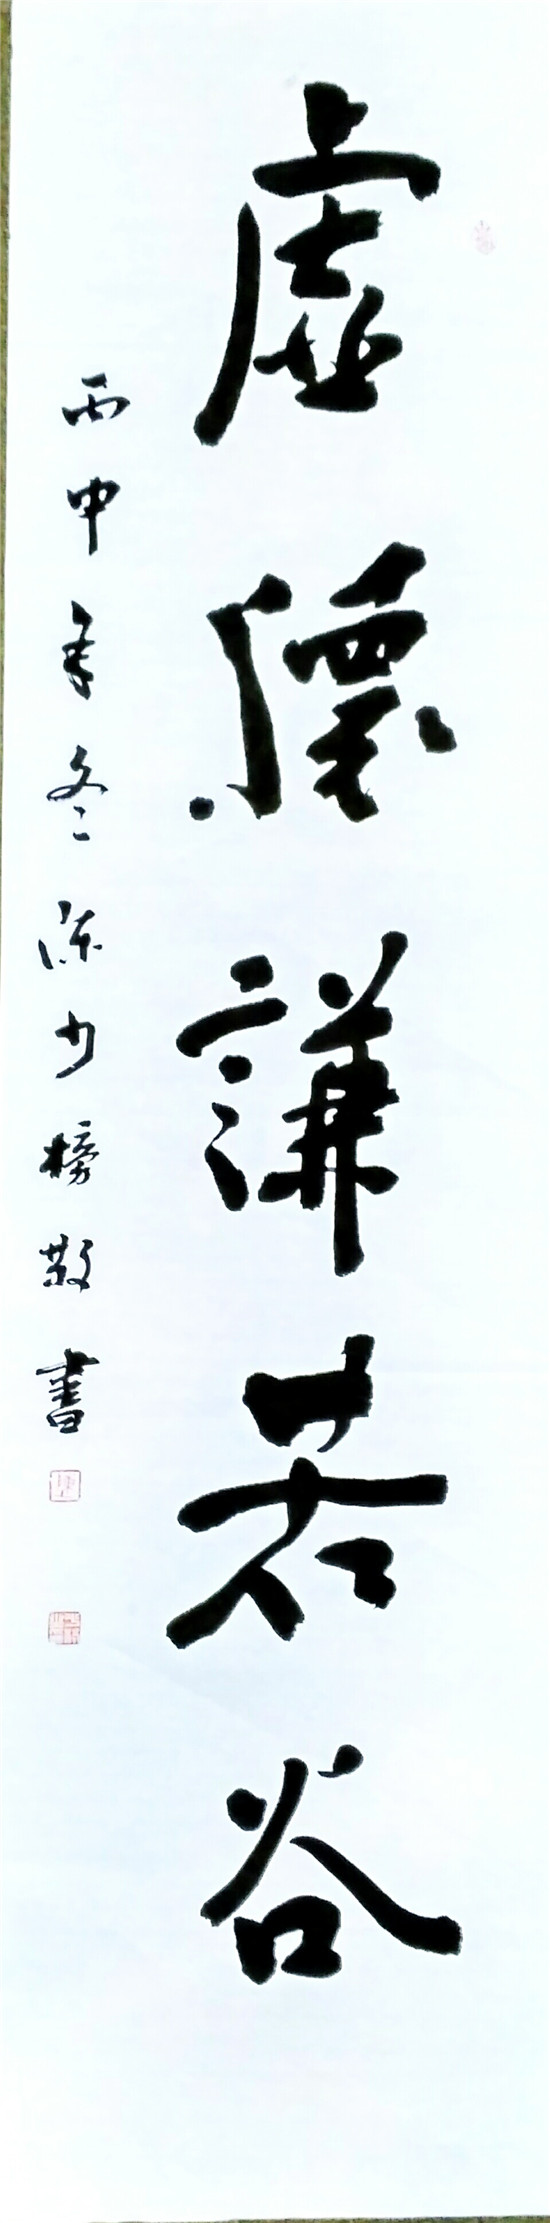 虛懷謙若谷
丙申年冬陈少榜敬書